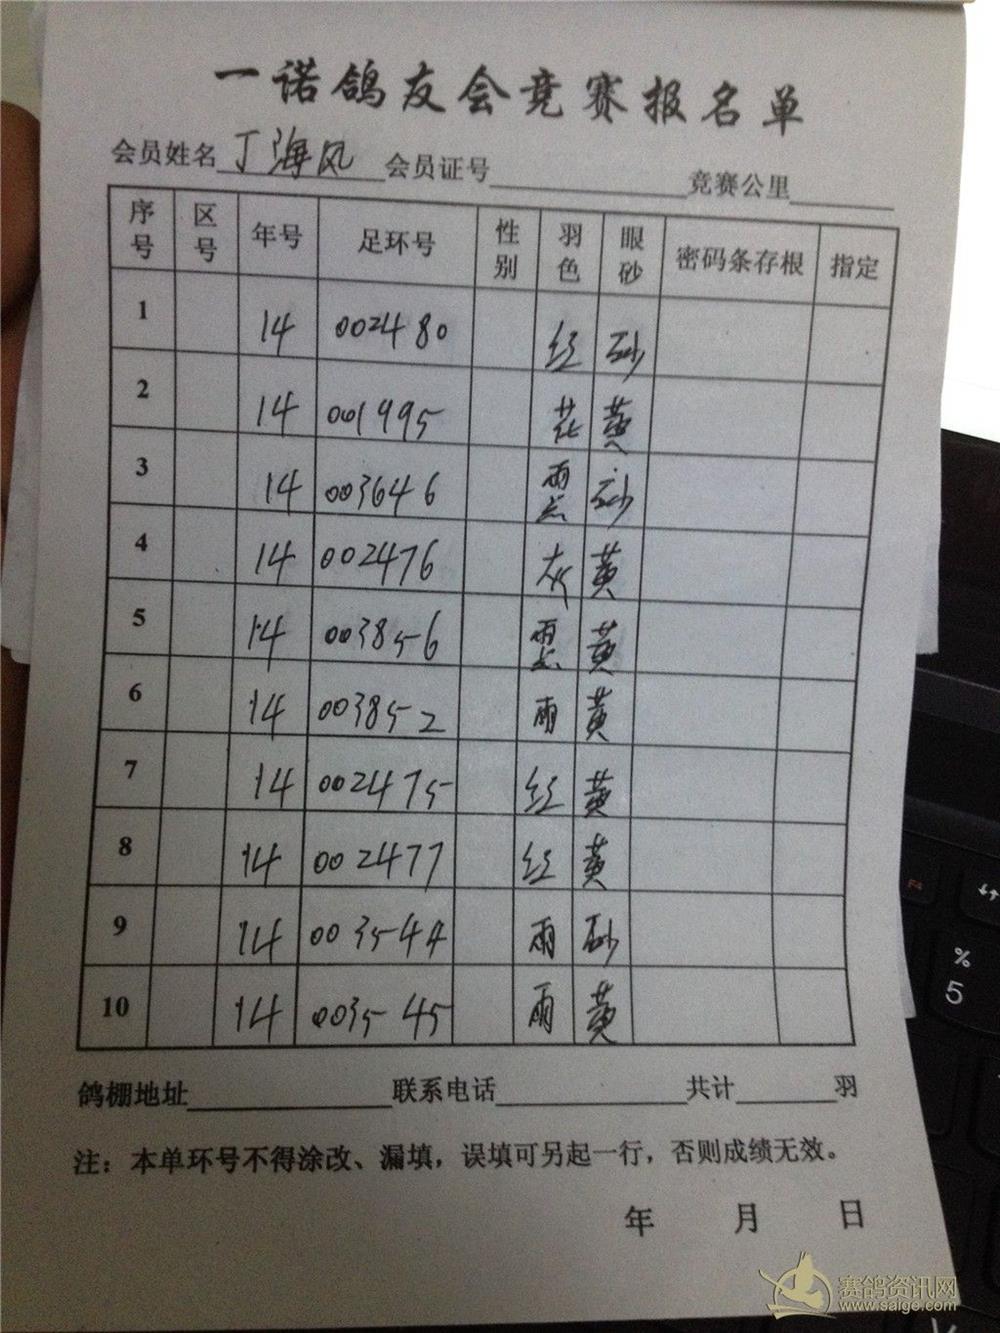 一诺鸽友会竞赛报名单
会员姓名 丁海风 会员证号 竞赛公里
序号 区号 年号 足环号 性别 羽色 眼砂 密码条存根 指定
1 14 002480 红 砂
2 14 001995 花 黄
3 14 003646 雨点 砂
4 14 002476 灰 黄
5 14 003856 雨点 黄
6 14 003852 雨 黄
7 14 002475 红 黄
8 14 002477 红 黄
9 14 003544 雨 砂
10 14 003545 雨 黄
鸽棚地址 联系电话 共计 羽
注：本单环号不得涂改、漏填，误填可另起一行，否则成绩无效。
年 月 日
F4
%
5
赛鸽资讯网
www.saige.com